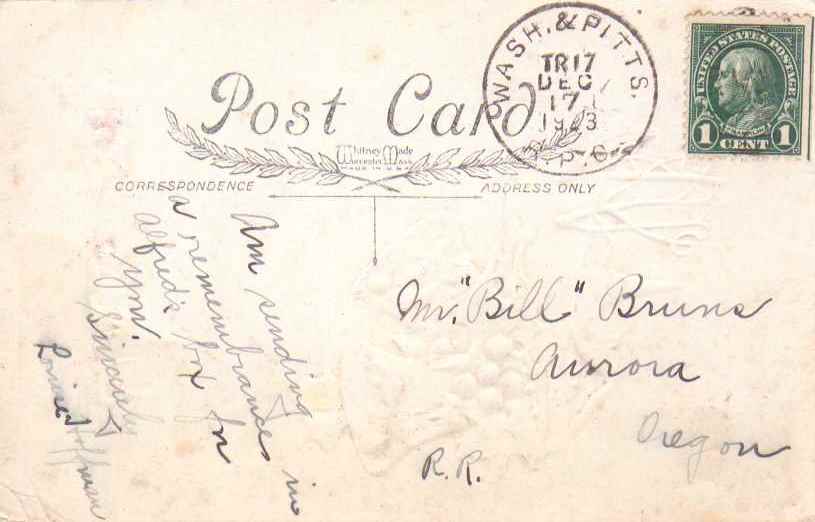 Post Card
Whitney Made
Worcester Mass
MADE IN U.S.A.
CORRESPONDENCE
ADDRESS ONLY
WASH. & PITTS.
TR 17
DEC
17
1923
R.P.O.
UNITED STATES POSTAGE
FRANKLIN
1 CENT 1
Am sending
a remembrance in
Alfred's box for
you.
Sincerely
Louise Hoffman
Mr. "Bill" Bruns
Aurora
Oregon
R.R.